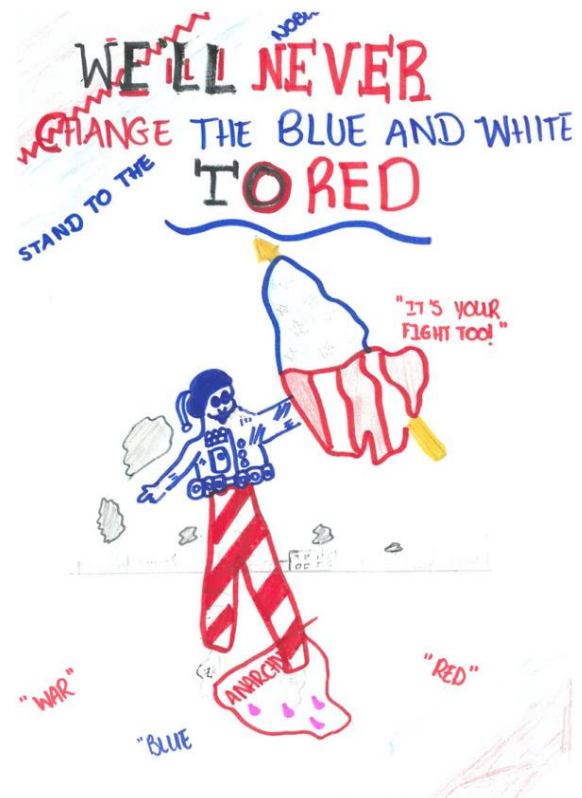 WE'LL NEVER
CHANGE THE BLUE AND WHIITE
TO RED
STAND TO THE
"IT'S YOUR
FIGHT TOO!"
ANARCHY
"WAR"
"RED"
"BLUE